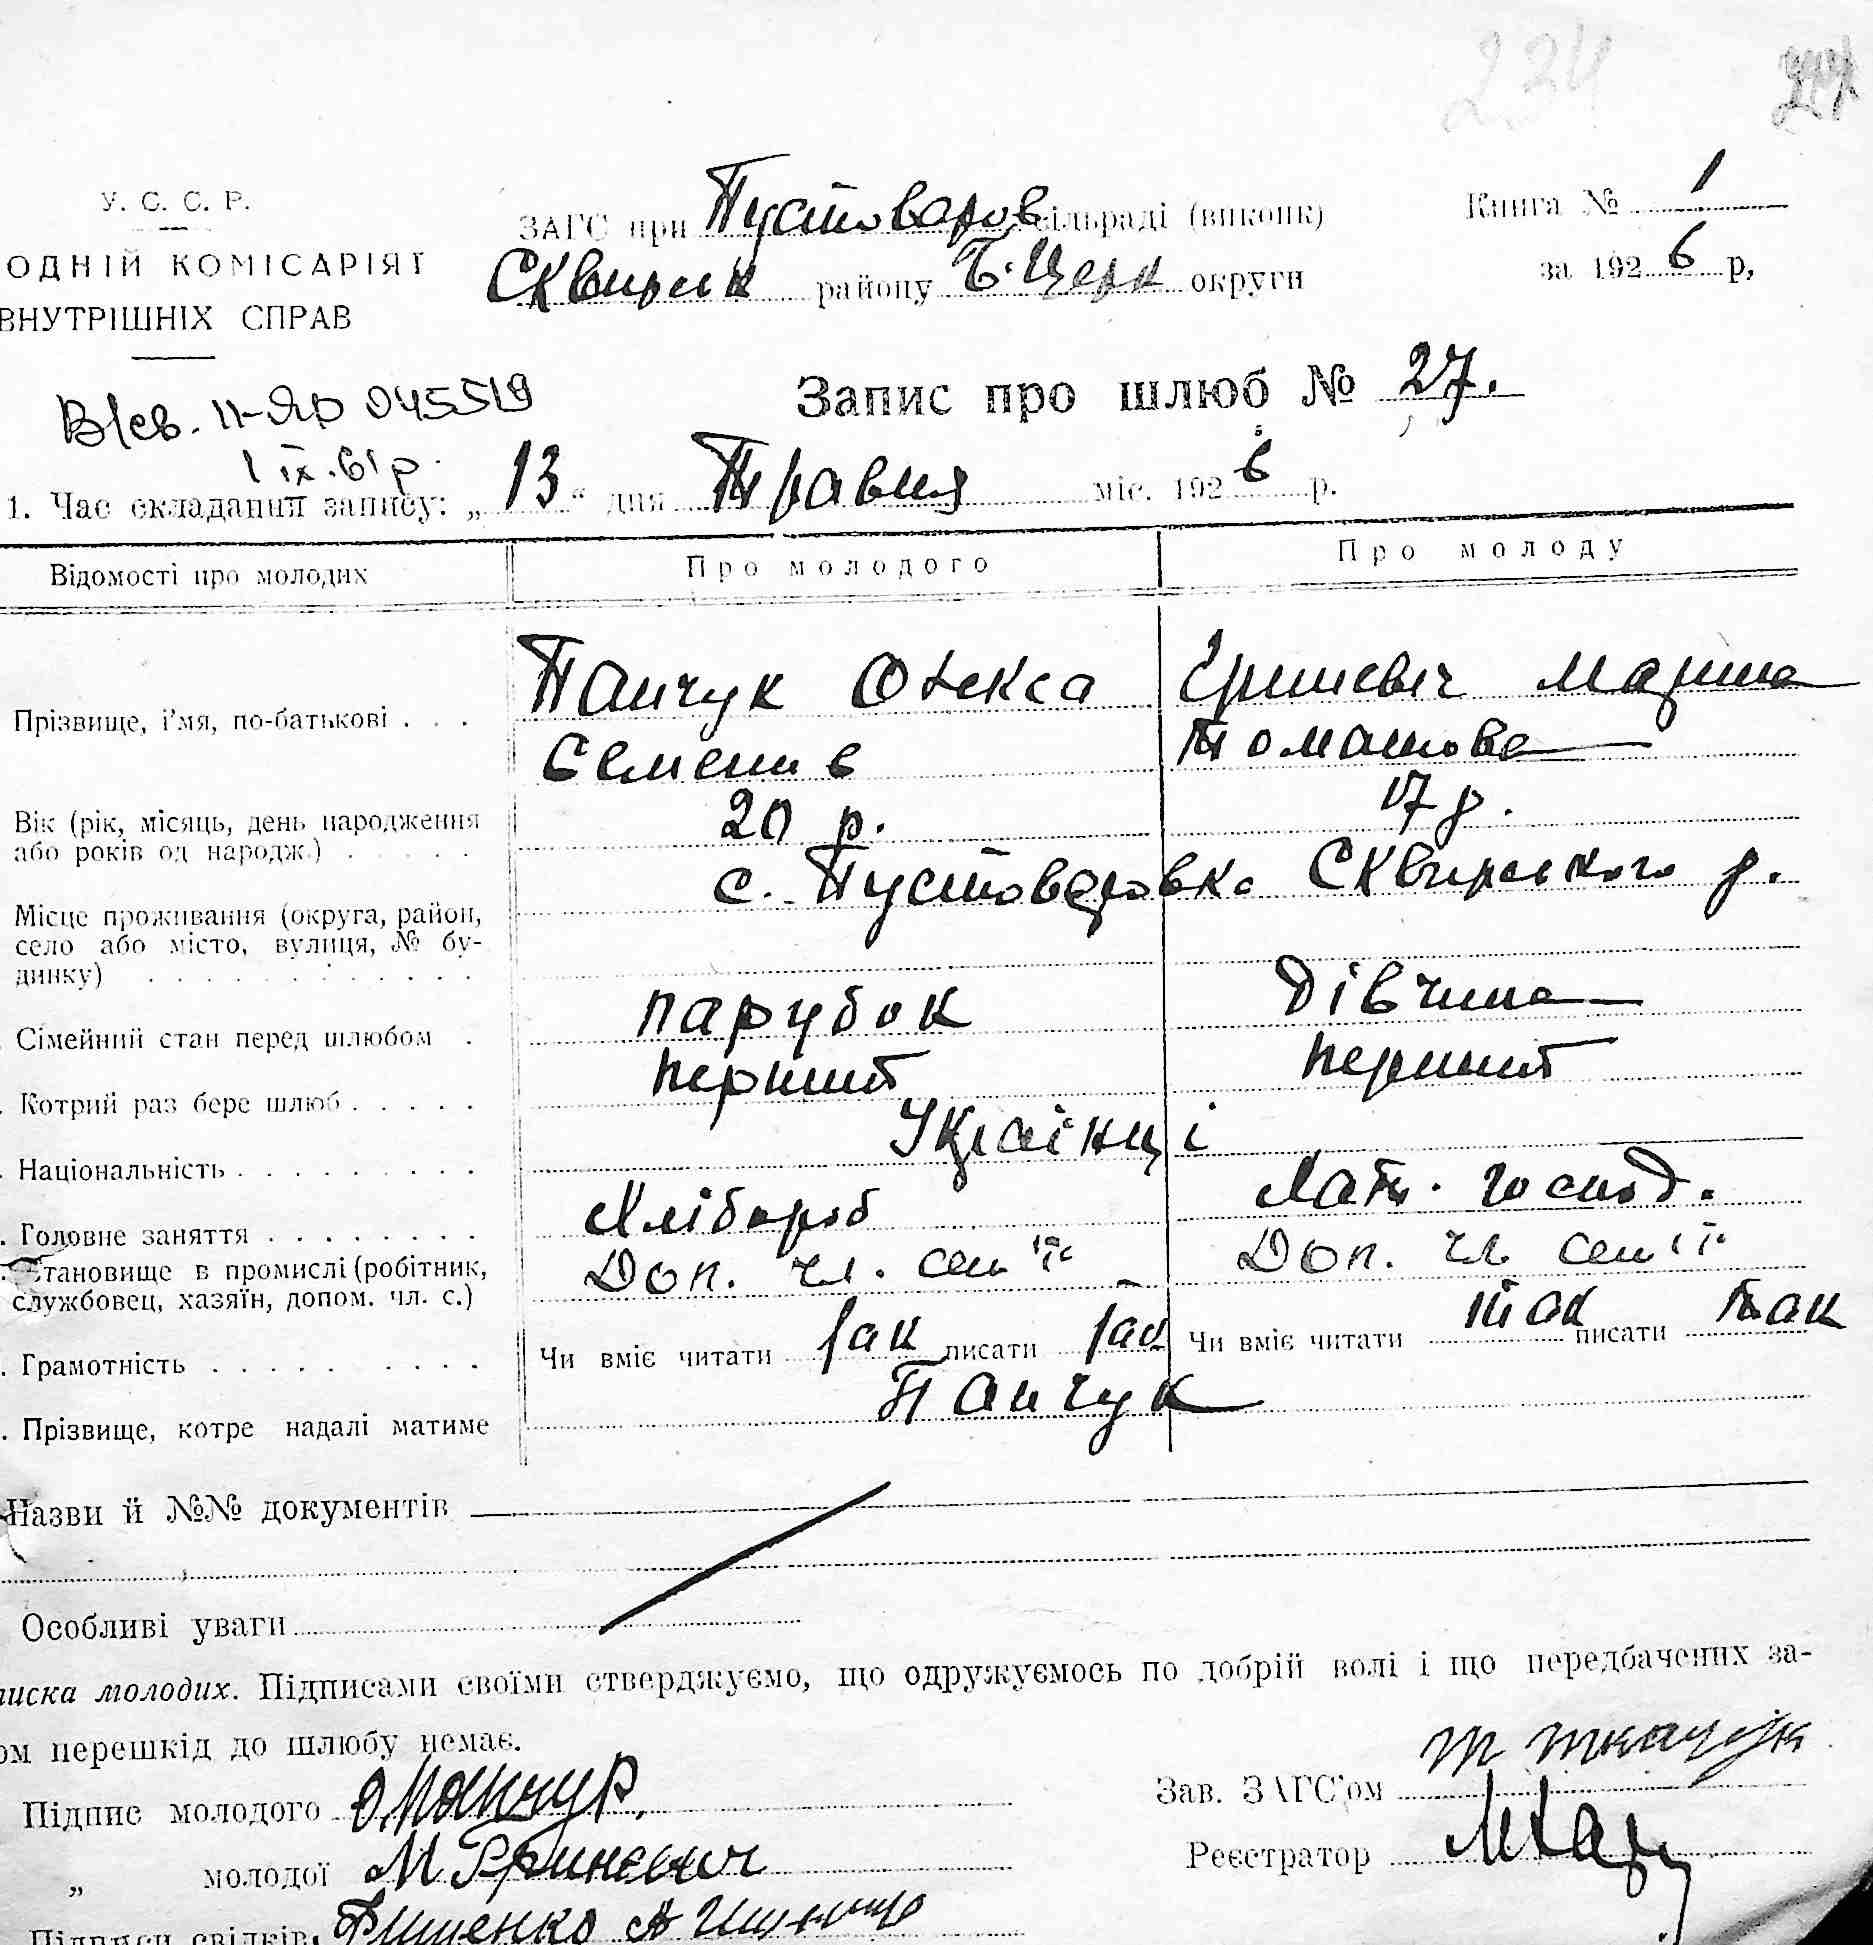 234
У. С. С. Р.
ЗАГС при Пустоваров сільраді (виконк)
Книга № 1
ОДНІЙ КОМІСАРІЯТ
Сквирськ району Б. Церк округи
за 192 6 р,
ВНУТРІШНІХ СПРАВ
Запис про шлюб № 27.
В/св. II-ЯР 045519
1 IX. 61 р.
1. Час складання запису: „ 13 “ дня Травня міс. 192 6 р.
Відомості про молодих
Про молодого
Про молоду
Прізвище, і’мя, по-батькові . . .
Панчук Олекса
Семенів
Гриневіч Марина
Томашова
Вік (рік, місяць, день народження
або років од народж.) . . . . .
20 р.
17 р.
Місце проживання (округа, район,
село або місто, вулиця, № бу-
динку) . . . . . . . . . . . .
с. Пустоваровка Сквирського р.
Сімейний стан перед шлюбом .
парубок
дівчина
. Котрий раз бере шлюб . . . . .
перший
перший
. Національність . . . . . . . . .
Українці
. Головне заняття . . . . . . . .
Хлібороб
Хатн. господ.
Становище в промислі (робітник,
службовец, хазяїн, допом. чл. с.)
Доп. чл. сем'ї
Доп. чл сем'ї
. Грамотність . . . . . . . . .
Чи вміє читати так писати так
Чи вміє читати так писати так
. Прізвище, котре надалі матиме
Панчук
Назви й №№ документів
Особливі уваги
иска молодих. Підписами своїми стверджуємо, що одружуємось по добрій волі і що передбачених за-
ом перешкід до шлюбу немає.
Підпис молодого О Панчук
Зав. ЗАГС’ом Т Ткачук
„ молодої М Гриневич
Реєстратор
Підписи свідків: